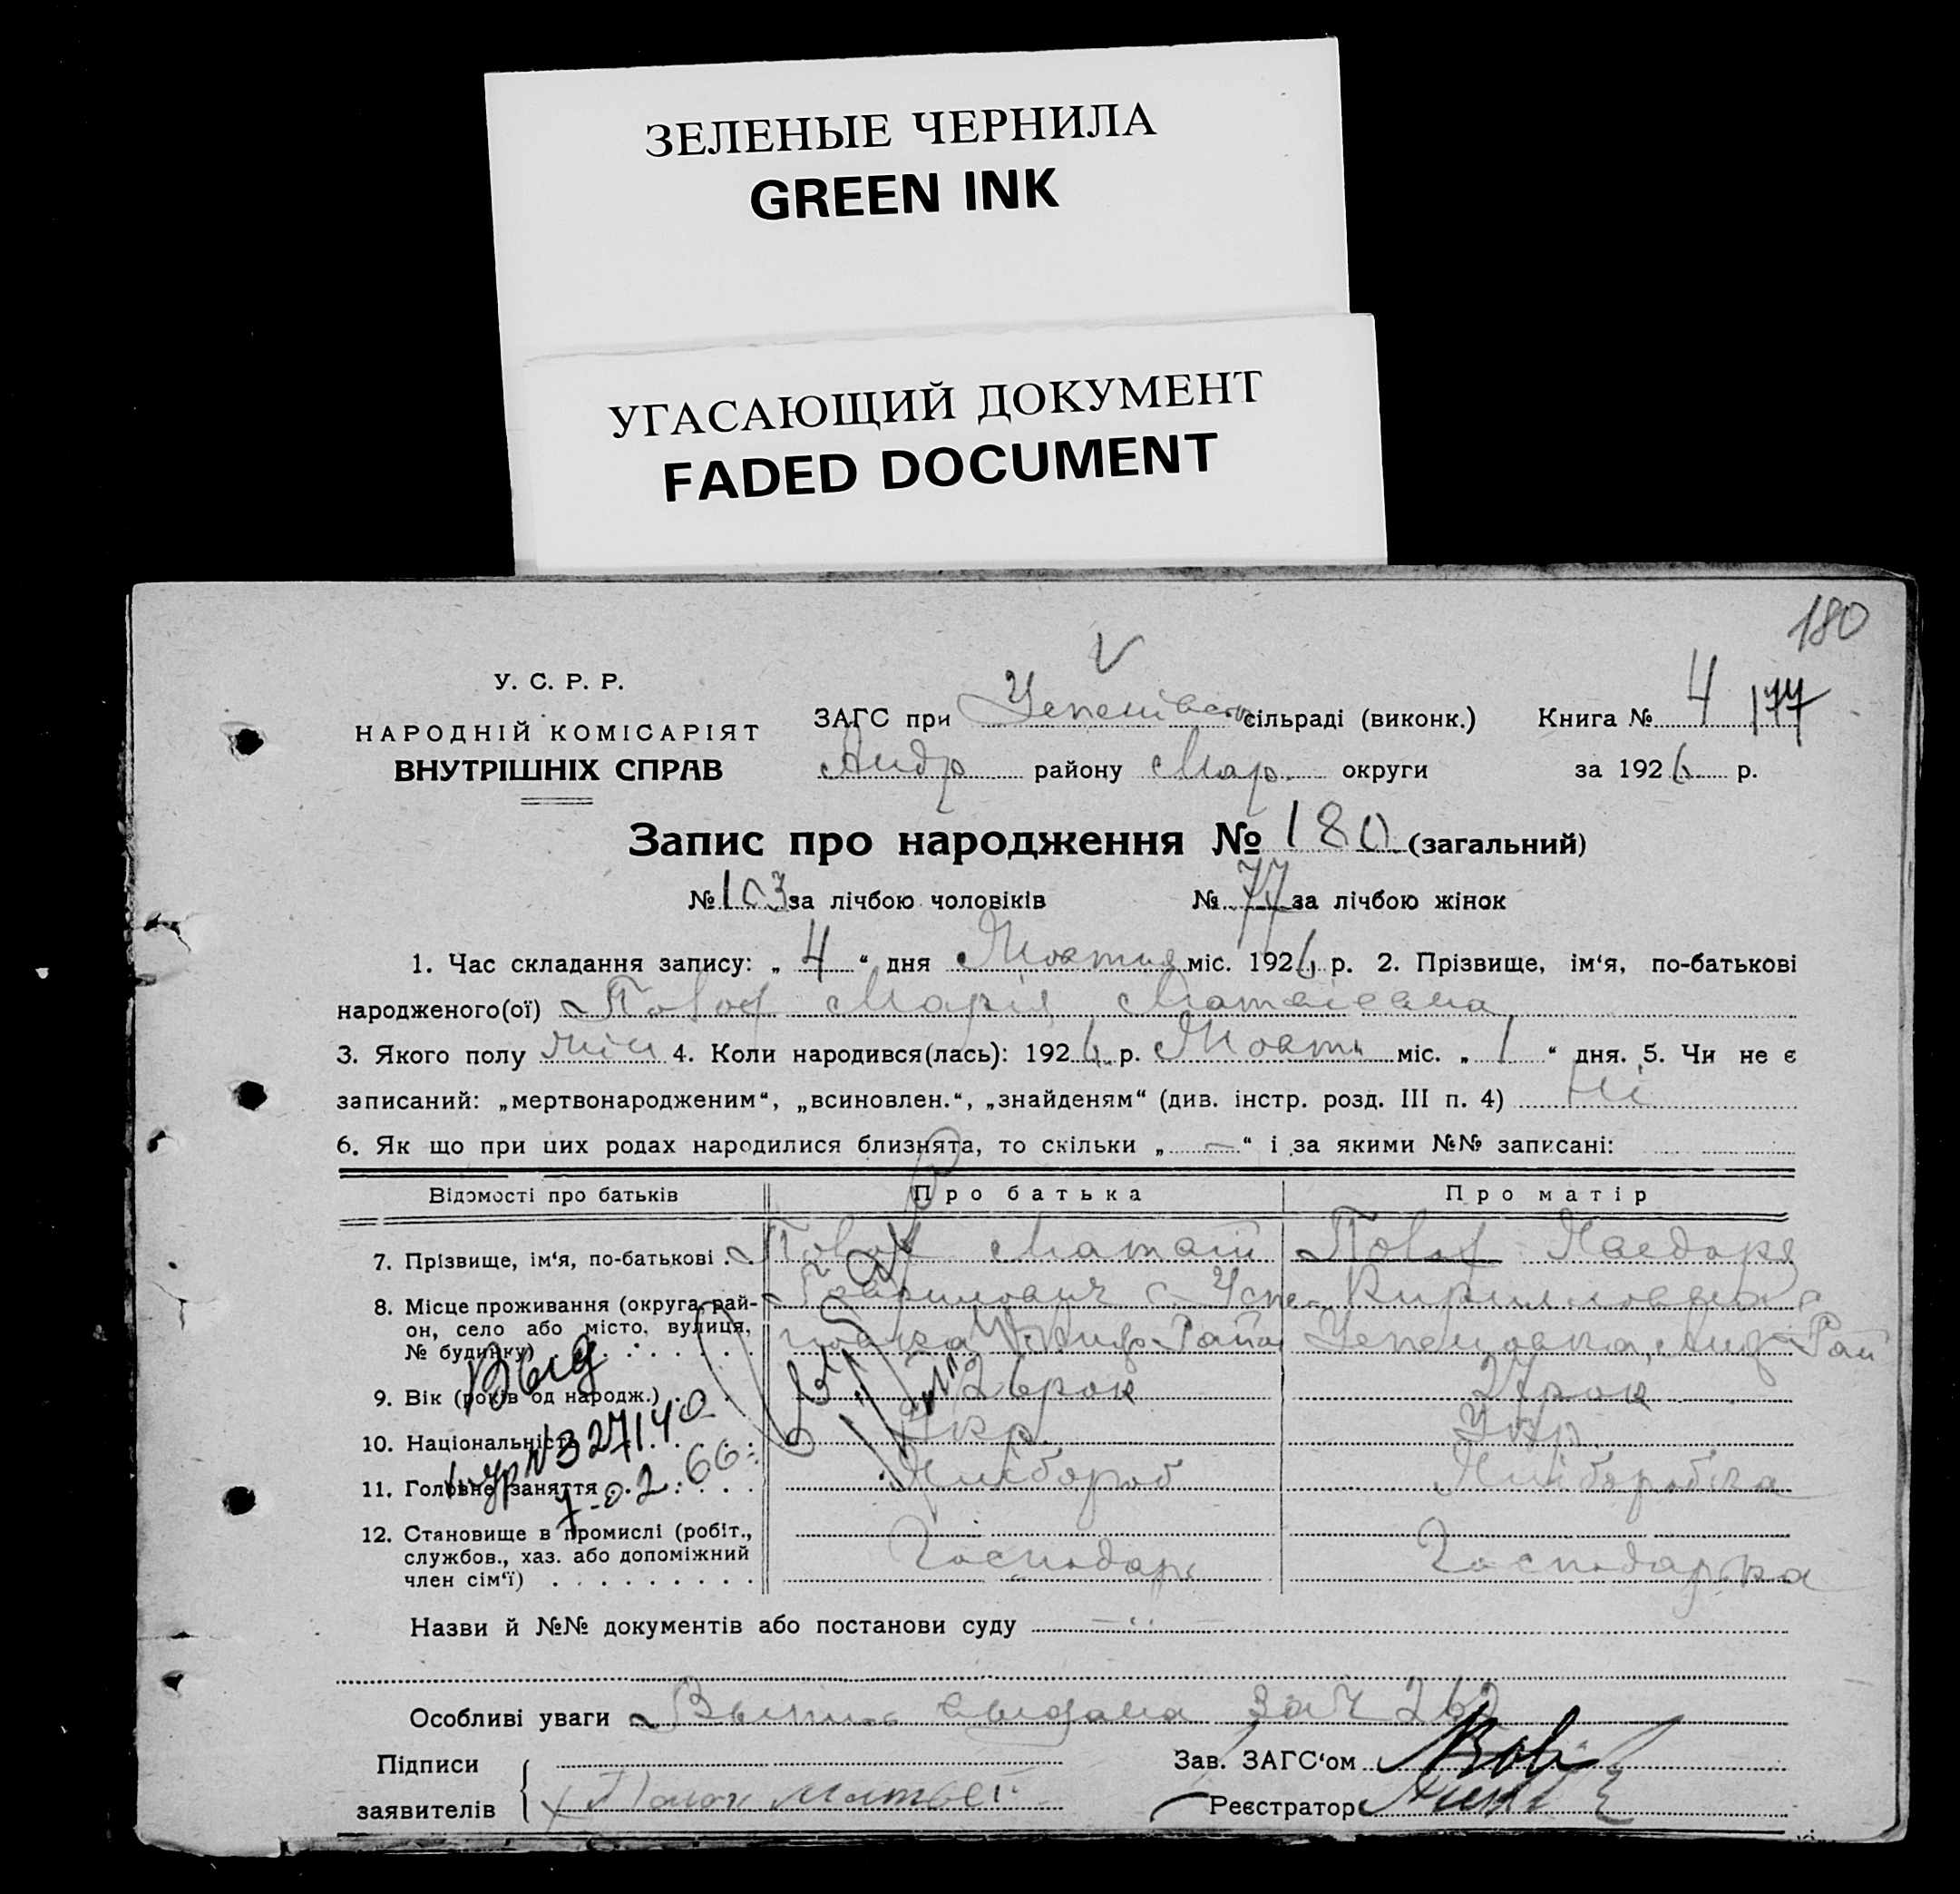 ЗЕЛЕНЫЕ ЧЕРНИЛА
GREEN INK
УГАСАЮЩИЙ ДОКУМЕНТ
FADED DOCUMENT
180
У. С. Р. Р.
НАРОДНІЙ КОМІСАРІЯТ
ВНУТРІШНІХ СПРАВ
ЗАГС при Успенівськ сільраді (виконк.) Книга № 4 177
Андр району Мар. округи за 1926 р.
Запис про народження № 180 (загальний)
№ 103 за лічбою чоловіків № 77 за лічбою жінок
1. Час складання запису: „ 4 “ дня Жовтня міс. 1926 р. 2. Прізвище, ім‘я, по-батькові
народженого(ої) Марія Матвіевна
3. Якого полу жін 4. Коли народився(лась): 1926 р. Жовт міс. „ 1 “ дня. 5. Чи не є
записаний: „мертвонародженим“, „всиновлен.“, „знайденям“ (див. інстр. розд. III п. 4) Ні
6. Як що при цих родах народилися близнята, то скільки „ — “ і за якими №№ записані:
Відомості про батьків Про батька Про матір
7. Прізвище, ім‘я, по-батькові Матвій
8. Місце проживання (округа, рай- Гаврилович с. Успе- Кирилловна с
он, село або місто, вулиця, новка Андр-Район Успеновка, Анд-Рай
№ будинку)
9. Вік (років од народж.) 26 рок 27 рок
10. Національність Укр. Укр
11. Головне заняття Хлібороб Хліборобка
12. Становище в промислі (робіт.,
службов., хаз. або допоміжний Господарь Господарька
член сім‘ї)
Выд
№ 327140
7-02.66
Назви й №№ документів або постанови суду —
Особливі уваги Выпись выдана за Ч 262
Підписи
заявителів Матвей
Зав. ЗАГС‘ом
Реєстратор